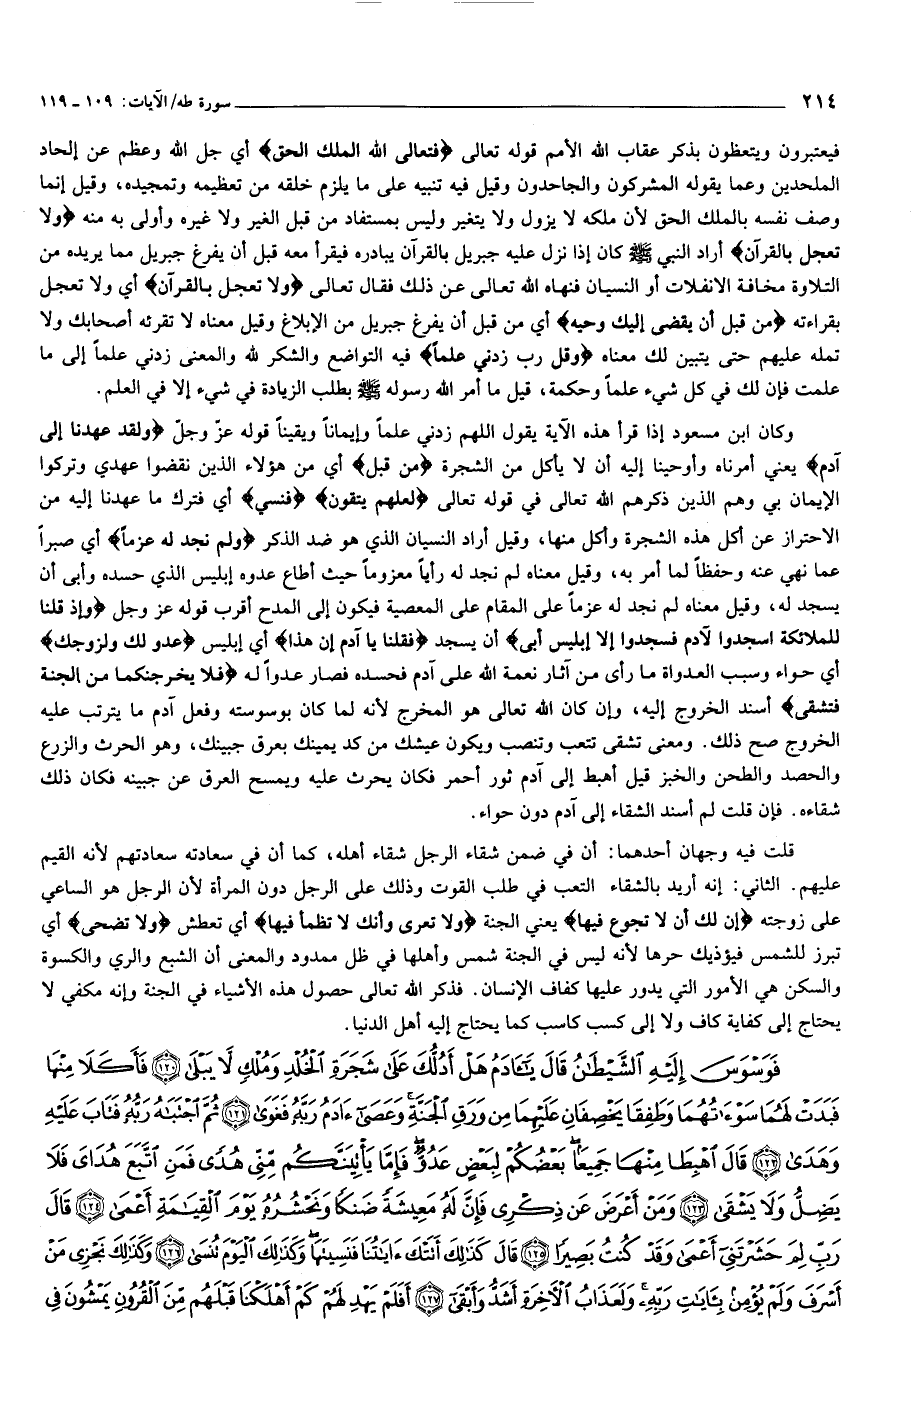 ٢١٤ سورة طه/ الآيات: ١٠٩ - ١١٩
فيعتبرون ويتعظون بذكر عقاب الله الأمم قوله تعالى ﴿فتعالى الله الملك الحق﴾ أي جل الله وعظم عن إلحاد
الملحدين وعما يقوله المشركون والجاحدون وقيل فيه تنبيه على ما يلزم خلقه من تعظيمه وتمجيده، وقيل إنما
وصف نفسه بالملك الحق لأن ملكه لا يزول ولا يتغير وليس بمستفاد من قبل الغير ولا غيره وأولى به منه ﴿ولا
تعجل بالقرآن﴾ أراد النبي ﷺ كان إذا نزل عليه جبريل بالقرآن يبادره فيقرأ معه قبل أن يفرغ جبريل مما يريده من
التلاوة مخافة الانفلات أو النسيان فنهاه الله تعالى عن ذلك فقال تعالى ﴿ولا تعجل بالقرآن﴾ أي ولا تعجل
بقراءته ﴿من قبل أن يقضى إليك وحيه﴾ أي من قبل أن يفرغ جبريل من الإبلاغ وقيل معناه لا تقرئه أصحابك ولا
تمله عليهم حتى يتبين لك معناه ﴿وقل رب زدني علماً﴾ فيه التواضع والشكر لله والمعنى زدني علماً إلى ما
علمت فإن لك في كل شيء علماً وحكمة، قيل ما أمر الله رسوله ﷺ بطلب الزيادة في شيء إلا في العلم.
وكان ابن مسعود إذا قرأ هذه الآية يقول اللهم زدني علماً وإيماناً ويقيناً قوله عزّ وجلّ ﴿ولقد عهدنا إلى
آدم﴾ يعني أمرناه وأوحينا إليه أن لا يأكل من الشجرة ﴿من قبل﴾ أي من هؤلاء الذين نقضوا عهدي وتركوا
الإيمان بي وهم الذين ذكرهم الله تعالى في قوله تعالى ﴿لعلهم يتقون﴾ ﴿فنسي﴾ أي فترك ما عهدنا إليه من
الاحتراز عن أكل هذه الشجرة وأكل منها، وقيل أراد النسيان الذي هو ضد الذكر ﴿ولم نجد له عزماً﴾ أي صبراً
عما نهي عنه وحفظاً لما أمر به، وقيل معناه لم نجد له رأياً معزوماً حيث أطاع عدوه إبليس الذي حسده وأبى أن
يسجد له، وقيل معناه لم نجد له عزماً على المقام على المعصية فيكون إلى المدح أقرب قوله عز وجل ﴿وإذ قلنا
للملائكة اسجدوا لآدم فسجدوا إلا إبليس أبى﴾ أن يسجد ﴿فقلنا يا آدم إن هذا﴾ أي إبليس ﴿عدو لك ولزوجك﴾
أي حواء وسبب العدواة ما رأى من آثار نعمة الله على آدم فحسده فصار عدواً له ﴿فلا يخرجنكما من الجنة
فتشقى﴾ أسند الخروج إليه، وإن كان الله تعالى هو المخرج لأنه لما كان بوسوسته وفعل آدم ما يترتب عليه
الخروج صح ذلك. ومعنى تشقى تتعب وتنصب ويكون عيشك من كد يمينك بعرق جبينك، وهو الحرث والزرع
والحصد والطحن والخبز قيل أهبط إلى آدم ثور أحمر فكان يحرث عليه ويمسح العرق عن جبينه فكان ذلك
شقاءه. فإن قلت لم أسند الشقاء إلى آدم دون حواء.
قلت فيه وجهان أحدهما: أن في ضمن شقاء الرجل شقاء أهله، كما أن في سعادته سعادتهم لأنه القيم
عليهم. الثاني: إنه أريد بالشقاء التعب في طلب القوت وذلك على الرجل دون المرأة لأن الرجل هو الساعي
على زوجته ﴿إن لك أن لا تجوع فيها﴾ يعني الجنة ﴿ولا تعرى وأنك لا تظمأ فيها﴾ أي تعطش ﴿ولا تضحى﴾ أي
تبرز للشمس فيؤذيك حرها لأنه ليس في الجنة شمس وأهلها في ظل ممدود والمعنى أن الشبع والري والكسوة
والسكن هي الأمور التي يدور عليها كفاف الإنسان. فذكر الله تعالى حصول هذه الأشياء في الجنة وإنه مكفي لا
يحتاج إلى كفاية كاف ولا إلى كسب كاسب كما يحتاج إليه أهل الدنيا.
فَوَسْوَسَ إِلَيْهِ ٱلشَّيْطَٰنُ قَالَ يَٰٓـَٔادَمُ هَلْ أَدُلُّكَ عَلَىٰ شَجَرَةِ ٱلْخُلْدِ وَمُلْكٍ لَّا يَبْلَىٰ ۝١٢٠ فَأَكَلَا مِنْهَا
فَبَدَتْ لَهُمَا سَوْءَٰتُهُمَا وَطَفِقَا يَخْصِفَانِ عَلَيْهِمَا مِن وَرَقِ ٱلْجَنَّةِ ۚ وَعَصَىٰٓ ءَادَمُ رَبَّهُۥ فَغَوَىٰ ۝١٢١ ثُمَّ ٱجْتَبَٰهُ رَبُّهُۥ فَتَابَ عَلَيْهِ
وَهَدَىٰ ۝١٢٢ قَالَ ٱهْبِطَا مِنْهَا جَمِيعًۢا ۖ بَعْضُكُمْ لِبَعْضٍ عَدُوٌّ ۖ فَإِمَّا يَأْتِيَنَّكُم مِّنِّى هُدًى فَمَنِ ٱتَّبَعَ هُدَاىَ فَلَا
يَضِلُّ وَلَا يَشْقَىٰ ۝١٢٣ وَمَنْ أَعْرَضَ عَن ذِكْرِى فَإِنَّ لَهُۥ مَعِيشَةً ضَنكًا وَنَحْشُرُهُۥ يَوْمَ ٱلْقِيَٰمَةِ أَعْمَىٰ ۝١٢٤ قَالَ
رَبِّ لِمَ حَشَرْتَنِىٓ أَعْمَىٰ وَقَدْ كُنتُ بَصِيرًا ۝١٢٥ قَالَ كَذَٰلِكَ أَتَتْكَ ءَايَٰتُنَا فَنَسِينَهَا ۖ وَكَذَٰلِكَ ٱلْيَوْمَ تُنسَىٰ ۝١٢٦ وَكَذَٰلِكَ نَجْزِى مَنْ
أَسْرَفَ وَلَمْ يُؤْمِنۢ بِـَٔايَٰتِ رَبِّهِۦ ۚ وَلَعَذَابُ ٱلْءَاخِرَةِ أَشَدُّ وَأَبْقَىٰٓ ۝١٢٧ أَفَلَمْ يَهْدِ لَهُمْ كَمْ أَهْلَكْنَا قَبْلَهُم مِّنَ ٱلْقُرُونِ يَمْشُونَ فِى